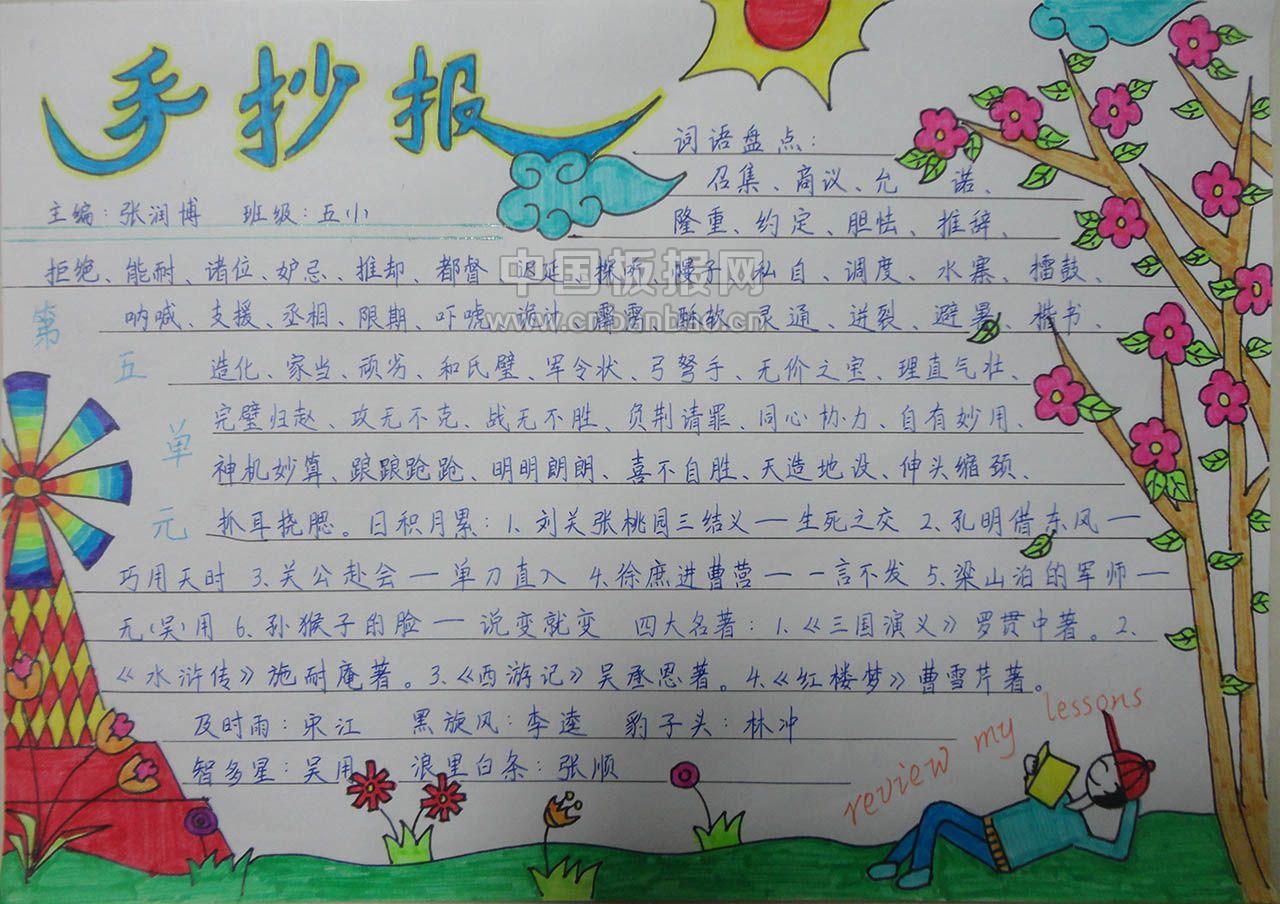 手抄报
词语盘点:
召集、商议、允 诺、
主编:张润博 班级:五小
隆重、约定、胆怯、推辞、
拒绝、能耐、诸位、妒忌、推却、都督、迟延、探听、幔子、私自、调度、水寨、擂鼓、
中国板报网
第五单元
呐喊、支援、丞相、限期、吓唬、诡计、霹雳、酥软、灵通、迸裂、避暑、楷书、
www.cnbanbao.cn
造化、家当、顽劣、和氏璧、军令状、弓弩手、无价之宝、理直气壮、
完璧归赵、攻无不克、战无不胜、负荆请罪、同心协力、自有妙用、
神机妙算、踉踉跄跄、明明朗朗、喜不自胜、天造地设、伸头缩颈、
抓耳挠腮。日积月累:1.刘关张桃园三结义—生死之交 2.孔明借东风—
巧用天时 3.关公赴会—单刀直入 4.徐庶进曹营—一言不发 5.梁山泊的军师—
无(吴)用 6.孙猴子的脸—说变就变 四大名著:1.《三国演义》罗贯中著。2.
《水浒传》施耐庵著。3.《西游记》吴承恩著。4.《红楼梦》曹雪芹著。
及时雨:宋江 黑旋风:李逵 豹子头:林冲
智多星:吴用 浪里白条:张顺
review my lessons